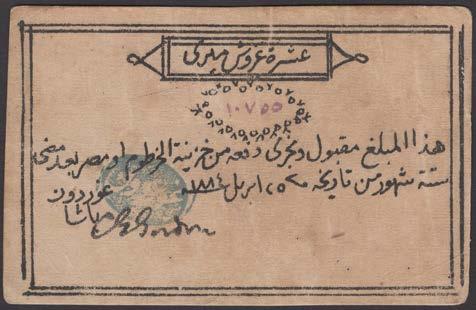 عشرة غروش ميرى
١٠٧٥٥
هذا المبلغ مقبول ويجرى دفعه من خزينة الخرطوم او مصر بعد مضى
ستة شهور من تاريخه ٢٥ ابريل ١٨٨٤
غوردون
باشا
Gordon